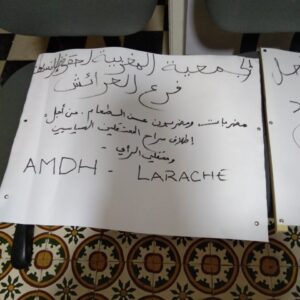 الجمعية المغربية لحقوق الإنسان
فرع العرائش
مضربات ومضربون عن الطعام. من أجل
إطلاق سراح المعتقلين السياسيين
ومعتقلي الرأي -
AMDH - LARACHE